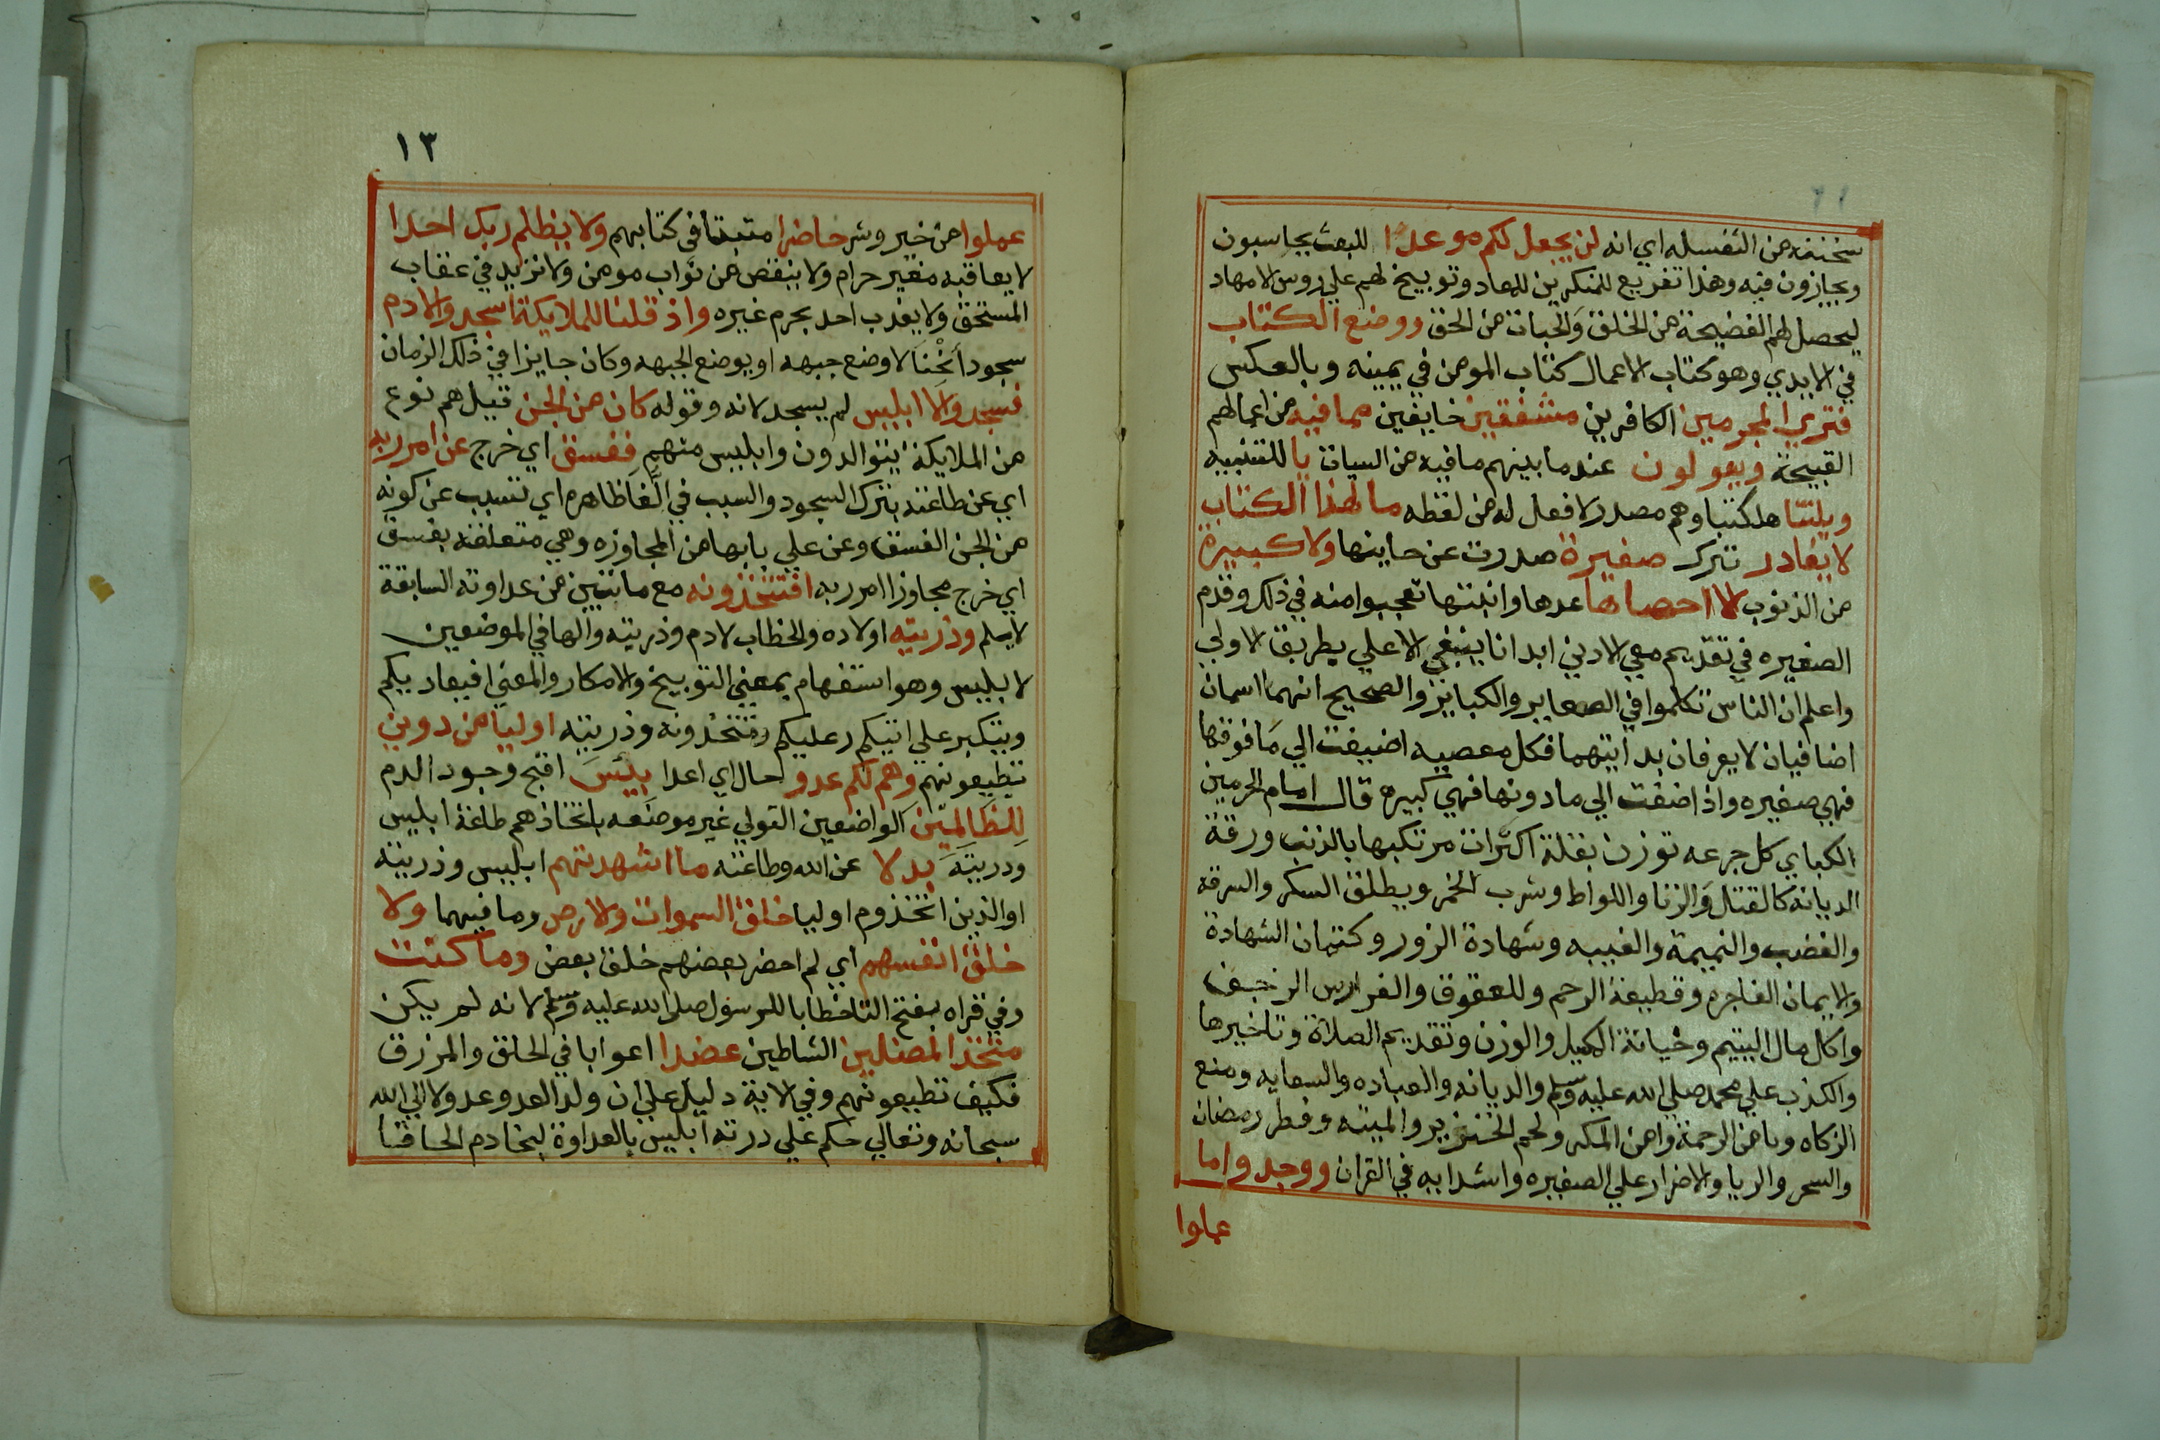 مخففة من الثقسله اي انه لن يجعل لكم موعدا للبعث يحاسبون
ويجازون فيه وهذا تقريع للمنكرين للمعاد وتوبيخ لهم علي روس الامهاد
ليحصل لهم الفضيحة من الخلق والخبات من الحق ووضع الكتاب
في الايدي وهو كتاب الاعمال كتاب المومن في يمينه وبالعكس
فتري المجرمين الكافرين مشفقين خايفين مما فيه من اعمالهم
القبيحة ويقولون عند ما بينهم ما فيه من السيات يا للتنبيه
ويلتنا هلكتنا وهم مصدر لا فعل له من لفظه ما لهذا الكتاب
لا يغادر تترك صغيرة صدرت عن حاينها ولا كبيرة
من الذنوب الا احصاها عدها واثبتها تعجبوا منه في ذلك وقدم
الصغيره في تقديم معي الادني ابدانا ينبغي الاعلي بطريق الاولي
واعلم ان الناس تكلموا في الصغاير والكباير والصحيح انهما اسمان
اضافيان لا يعرفان بدايتهما فكل معصيه اضيفت الي ما فوقها
فهي صغيره واذ اضفت الي ما دونها فهي كبيره قال امام الحرمين
الكباي كل جرعه توزن بقلة اكثرات مرتكبها بالذنب ورقة
الديانه كالقتل والزنا واللواط وشرب الخمر ويطلق السكر والسرقه
والغضب والنميمة والغيبه وشهادة الزور وكتمان الشهادة
والايمان الفاجره وقطيعة الرحم وللعقوق والفر الزحف
واكل مال اليتيم وخيانة الكيل والوزن وتقديم الصلاة وتاخيرها
والكذب علي محمد صلي الله عليه وسلم والديانه والعباده والسعايه ومنع
الزكاه وياس من الرحمة وامن المكر ولحم الخنزير والميته وفطر رمضان
والسحر والربا والاضرار علي الصغيره واشدابه في القران ووجدوا ما
عملوا
١٣
عملوا من خير وشر حاضرا مثبتا في كتابهم ولا يظلم ربك احدا
لا يعاقبه منغير حرام ولا ينقص من ثواب مومن ولا نزيد في عقاب
المستحق ولا يعذب احد بجرم غيره واذ قلنا للملايكة اسجدوا لادم
سجود أنحنا لا وضع جبهه او بوضع الجبهه وكان جايزا في ذلك الزمان
فسجدوا الا ابليس لم يسجد لانه وقوله كان من الجن قيل هم نوع
من الملايكة يتوالدون وابليس منهم ففسق اي خرج عن امر ربه
اي عن طاعته بترك السجود والسبب في الفا ظاهره اي تسبب عن كونه
من الجن الفسق وعن علي بابها من المجاوزه وهي متعلقة بفسق
اي خرج مجاوزا امر ربه افتتخذونه مع ما تبين من عداوته السابقة
لابيلم وذريته اولاده والخطاب لادم وذريته والها في الموضعين
لابليس وهو استفهام بمعني التوبيخ والانكار والمعني افبعاد بيكم
ويتكبر علي ابيكم وعليكم وتتخذونه وذريته اوليا من دوني
تطيعونهم وهم لكم عدو حال اي اعدا بيس اقبح وجود الدم
للظالمين الواضعين التولي غير موضعه باتخاذهم طاعة ابليس
ودريته بدلا عن الله وطاعته ما اشهدتهم ابليس وذريته
او الذين اتخذوم اوليا خلق السموات والارض وما فيهما ولا
خلق انفسهم اي لم احضر بعضهم خلق بعض وما كنت
وفي قراه بفتح التا خطابا للرسول صلي الله عليه وسلم لانه لم يكن
متخذ المضلين الشاطين عضدا اعوابا في الخلق والمرزق
فكيف تطيعونهم وفي الاية دليل علي ان ولد العدو عدو لان الله
سبحانه وتعالي حكم علي درته ابليس بالعداوة لبنحادم الحاقتا